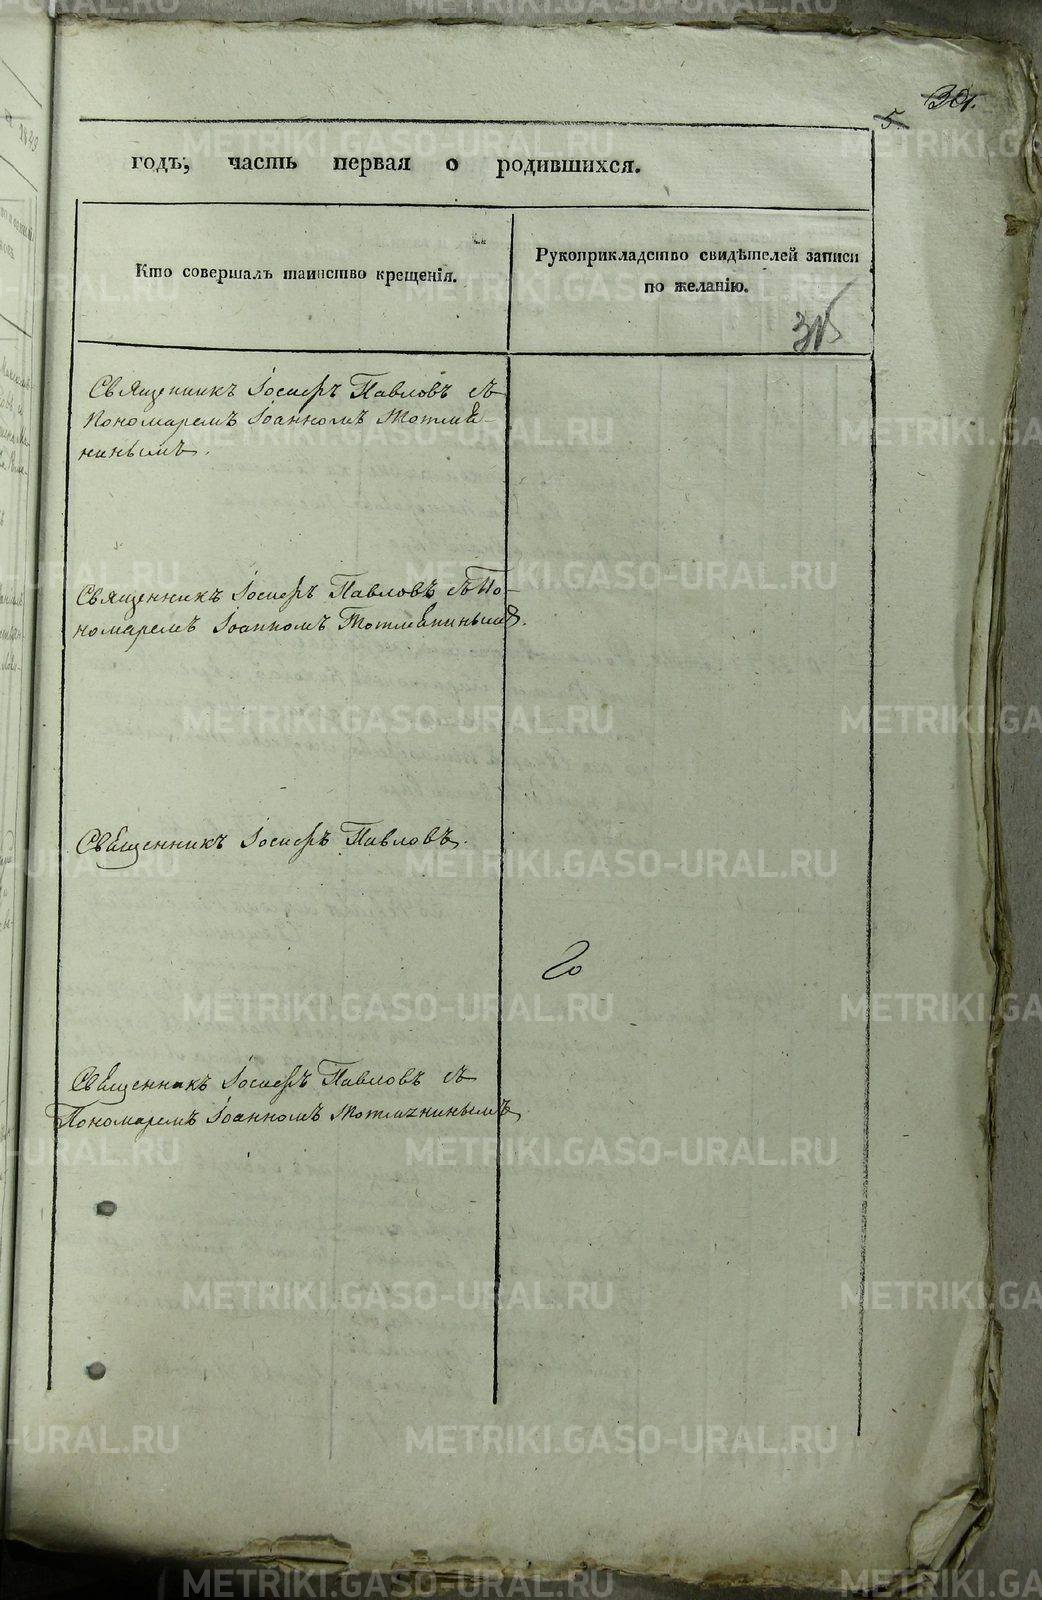 301.
5.
годъ, часть первая о родившихся.
Кто совершалъ таинство крещенія.
Рукоприкладство свидѣтелей записи
по желанію.
315
Священникъ Іосифъ Павловъ съ
Пономаремъ Іоанномъ Тотмѣ-
нинымъ.
Священникъ Іосифъ Павловъ съ По-
номаремъ Іоанномъ Тотмѣнинымъ.
Священникъ Іосифъ Павловъ.
Священникъ Іосифъ Павловъ съ
Пономаремъ Іоанномъ Тотмѣнинымъ
METRIKI.GASO-URAL.RU